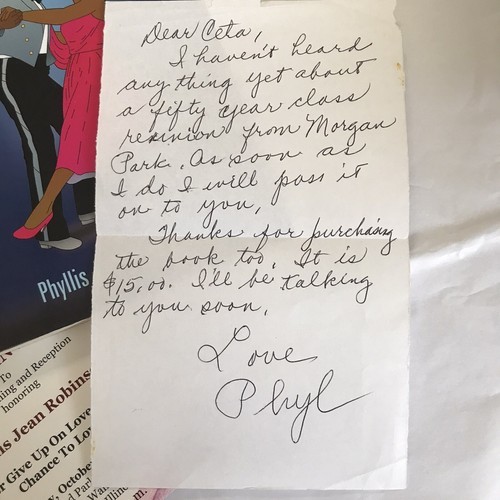 Dear Ceta,
I haven't heard
any thing yet about
a fifty year class
reunion from Morgan
Park. As soon as
I do I will pass it
on to you.
Thanks for purchasing
the book too. It is
$15.00. I'll be talking
to you soon.
Love
Phyl
Phyllis
To
ning and Reception
honoring
is Jean Robins
r Give Up On Love
Chance To Lov
y, October
d Par
Wa
llino